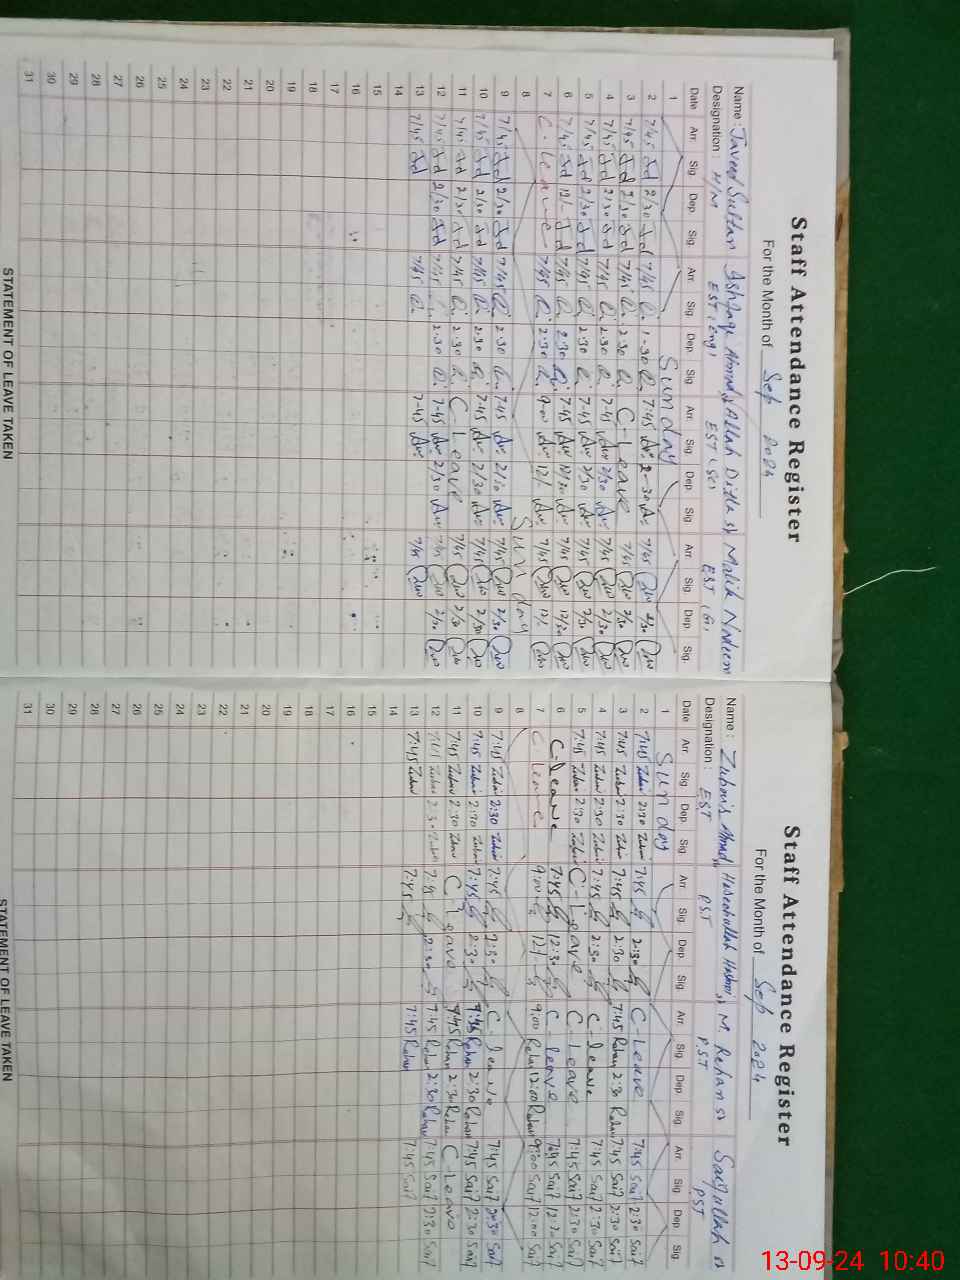 Staff Attendance Register
For the Month of Sep 2024
Name : Javeed Sultan Ishfaq Ahmad Allah Ditta Sb Malik Nadeem
Designation : H/M EST, Eng, EST, (Sc) EST, (G)
Date Arr. Sig. Dep. Sig. Arr. Sig. Dep. Sig. Arr. Sig. Dep. Sig. Arr. Sig. Dep. Sig.
1 Sunday
2 7/45 Jd 2/30 Jd 7/45 1-30 7:45 2-30 7/45 2/30
3 7/45 Jd 2/30 Jd 7/45 2.30 C-Leave 7/45 2/30
4 7/45 Jd 2/30 Jd 7/45 2.30 7-45 2/30 7/45 2/30
5 7/45 Jd 2/30 Jd 7/45 2.30 7-45 2/30 7/45 2/30
6 7/45 Jd 12/- Jd 7/45 2.30 7-45 12/30 7/45 12/30
7 C. leave 7/45 2.30 9-00 12/- 7/45 12/-
8 Sunday
9 7/45 Jd 2/30 Jd 7/45 2.30 7-45 2/30 7/45 2/30
10 7/45 Jd 2/30 Jd 7/45 2.30 7-45 2/30 7/45 2/30
11 7/45 Jd 2/30 Jd 7/45 2.30 C-Leave 7/45 2/30
12 7/45 Jd 2/30 Jd 7/45 2.30 7-45 2/30 7/45 2/30
13 7/45 Jd 7/45 7-45 7/45
14
15
16
17
18
19
20
21
22
23
24
25
26
27
28
29
30
31
STATEMENT OF LEAVE TAKEN
Staff Attendance Register
For the Month of Sep 2024
Name : Zubair Ahmad Haseebullah Hashmi M. Rehan Sb Saifullah Sb
Designation : EST PST P.ST PST
Date Arr. Sig. Dep. Sig. Arr. Sig. Dep. Sig. Arr. Sig. Dep. Sig. Arr. Sig. Dep. Sig.
1 Sunday
2 7:45 Zubair 2:30 Zubair 7:45 2:30 C-Leave 7:45 Saif 2:30 Saif
3 7:45 Zubair 2:30 Zubair 7:45 2:30 7:45 Rehan 2:30 Rehan 7:45 Saif 2:30 Saif
4 7:45 Zubair 2:30 Zubair 7:45 2:30 C-leave 7:45 Saif 2:30 Saif
5 7:45 Zubair 2:30 Zubair C-Leave C-Leave 7:45 Saif 2:30 Saif
6 C-leave 7:45 12:30 C-leave 7:45 Saif 12:30 Saif
7 C-leave 9:00 12/- 9:00 Rehan 12:00 Rehan 9:00 Saif 12:00 Saif
8
9 7:45 Zubair 2:30 Zubair 7:45 2:30 C-leave 7:45 Saif 2:30 Saif
10 7:45 Zubair 2:30 Zubair 7:45 2:30 7:45 Rehan 2:30 Rehan 7:45 Saif 2:30 Saif
11 7:45 Zubair 2:30 Zubair C-Leave 7:45 Rehan 2:30 Rehan C-Leave
12 7:45 Zubair 2:30 Zubair 7:45 2:30 7:45 Rehan 2:30 Rehan 7:45 Saif 2:30 Saif
13 7:45 Zubair 7:45 7:45 Rehan 7:45 Saif
14
15
16
17
18
19
20
21
22
23
24
25
26
27
28
29
30
31
STATEMENT OF LEAVE TAKEN
13-09-24 10:40